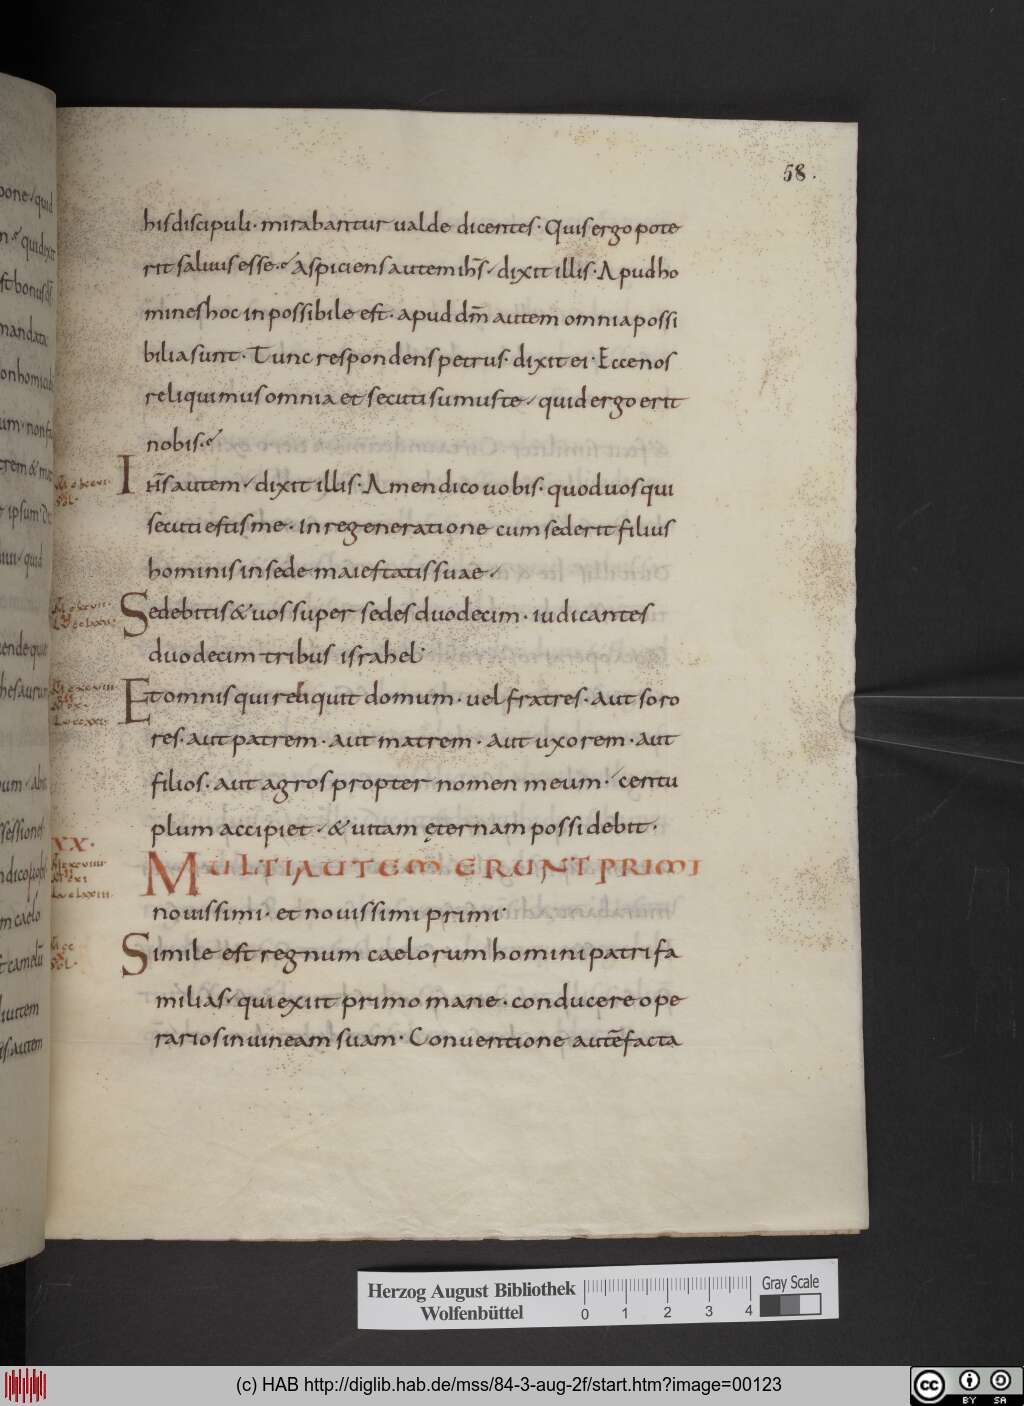 58.
hisdiscipuli· mirabantur ualde dicentes· Quisergopote
rit saluusesse· Aspiciensautem ih̄s dixit illis· Apudho
mineshoc inpossibile est· apud dm̄ autem omniapossi
biliasunt· Tunc respondenspetrus· dixit ei· Eccenos
reliquimusomnia et secutisumuste quidergoerit
nobis·
Ih̄sautem dixit illis· Amendicouobis· quoduosqui
secutiestisme· Inregeneratione cumsederit filius
hominisinsede maiestatissuae
Sedebitis&uossuper sedesduodecim· iudicantes
duodecim tribus israhel
Etomnisquireliquit domum· uelfratres· aut soro
res· autpatrem· aut matrem· aut uxorem· aut
filios· aut agrospropter nomen meum· centu
plum accipiet & uitam ęternampossidebit·
XX·
MULTIAUTEM ERUNTPRIMI
nouissimi· et nouissimi primi
Simile est regnum caelorumhominipatrifa
milias· quiexiit primomane· conducereope
rariosinuineam suam· Conuentione autēfacta
Herzog August Bibliothek
Wolfenbüttel
0 1 2 3 4
Gray Scale
(c) HAB http://diglib.hab.de/mss/84-3-aug-2f/start.htm?image=00123
cc BY SA